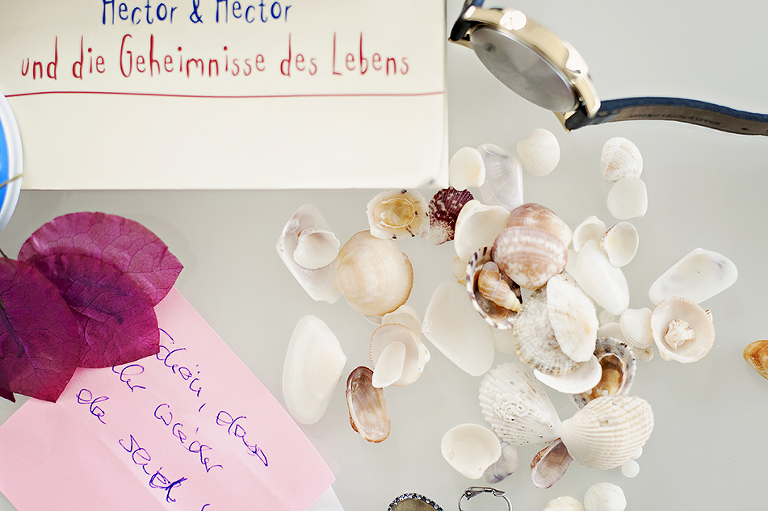 Hector & Hector
und die Geheimnisse des Lebens
Schön, dass
Ihr wieder
da seid